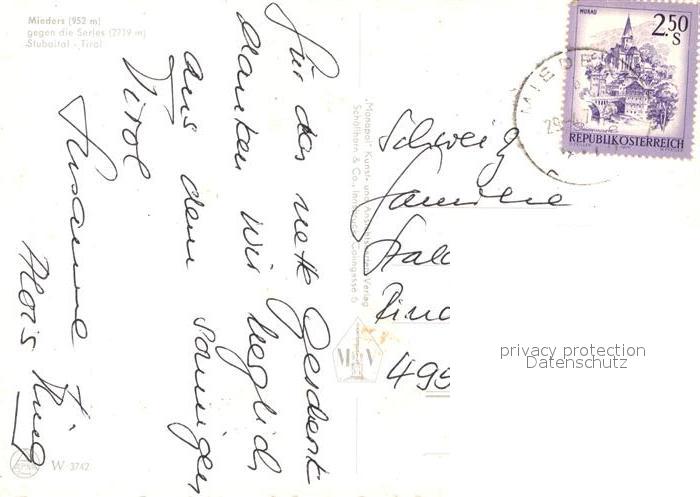 Mieders (952 m)
gegen die Serles (2719 m)
Stubaital - Tirol
Für das nette Geschenk
danken wir herzlich
aus dem sonnigen
Tirol
Susanne
Alois
"Monopol" Kunst- und Ansichtskarten-Verlag
Schöllhorn & Co., Innsbruck, Colingasse 6
W 3742
Schweiz
Familie
495
MURAU
2.50
S
REPUBLIK ÖSTERREICH
MIEDE
privacy protection
Datenschutz